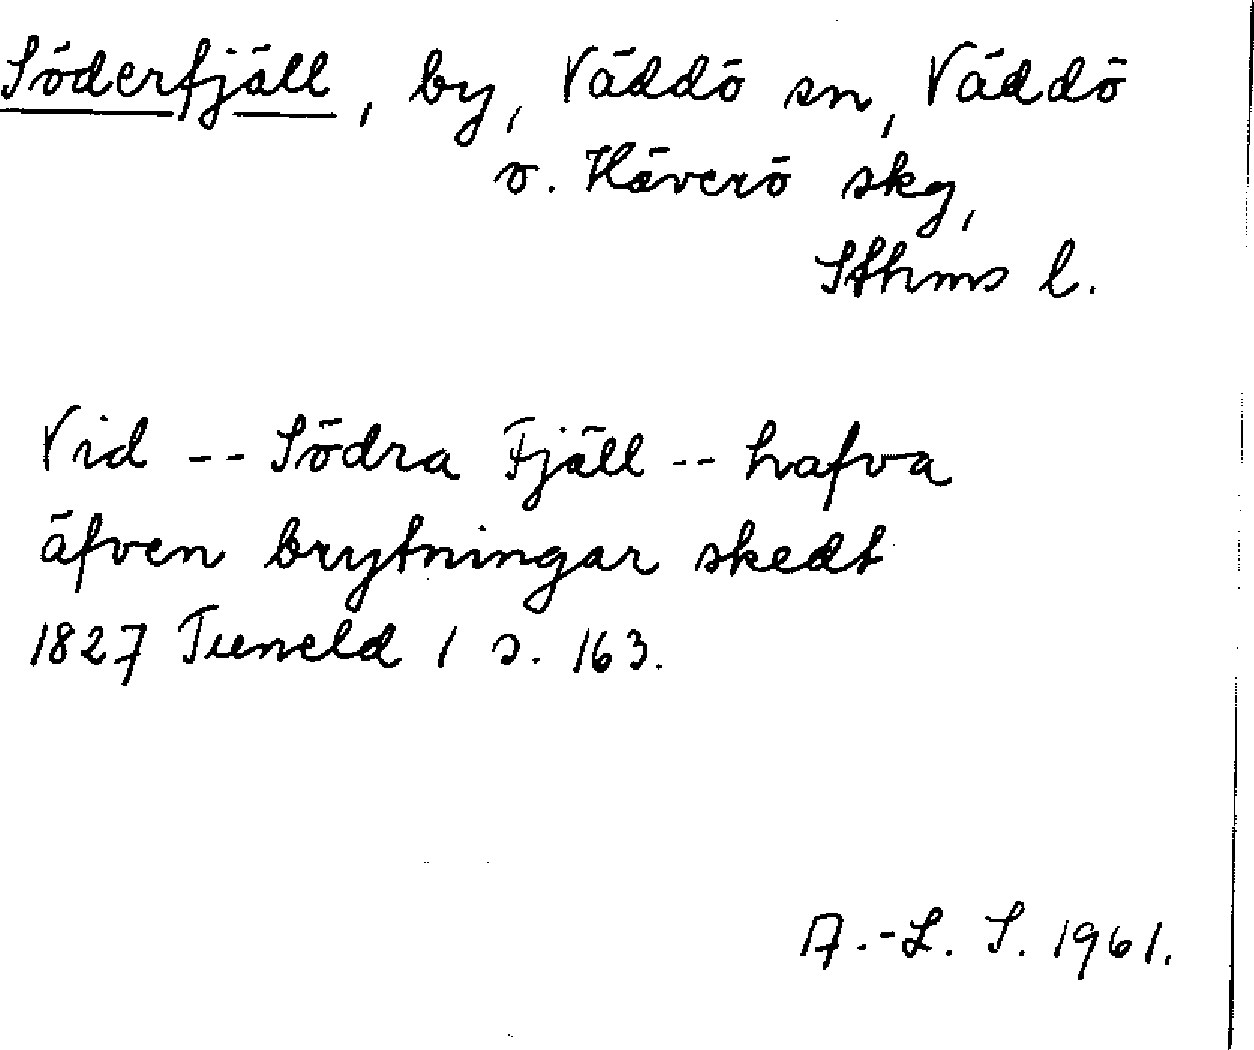 Söderfjäll, by, Väddö sn, Väddö
o. Häverö skg,
Sthms l.
Vid -- Södra Fjäll -- hafva
äfven brytningar skedt
1827 Tuneld 1 s. 163.
A.-L. S. 1961.